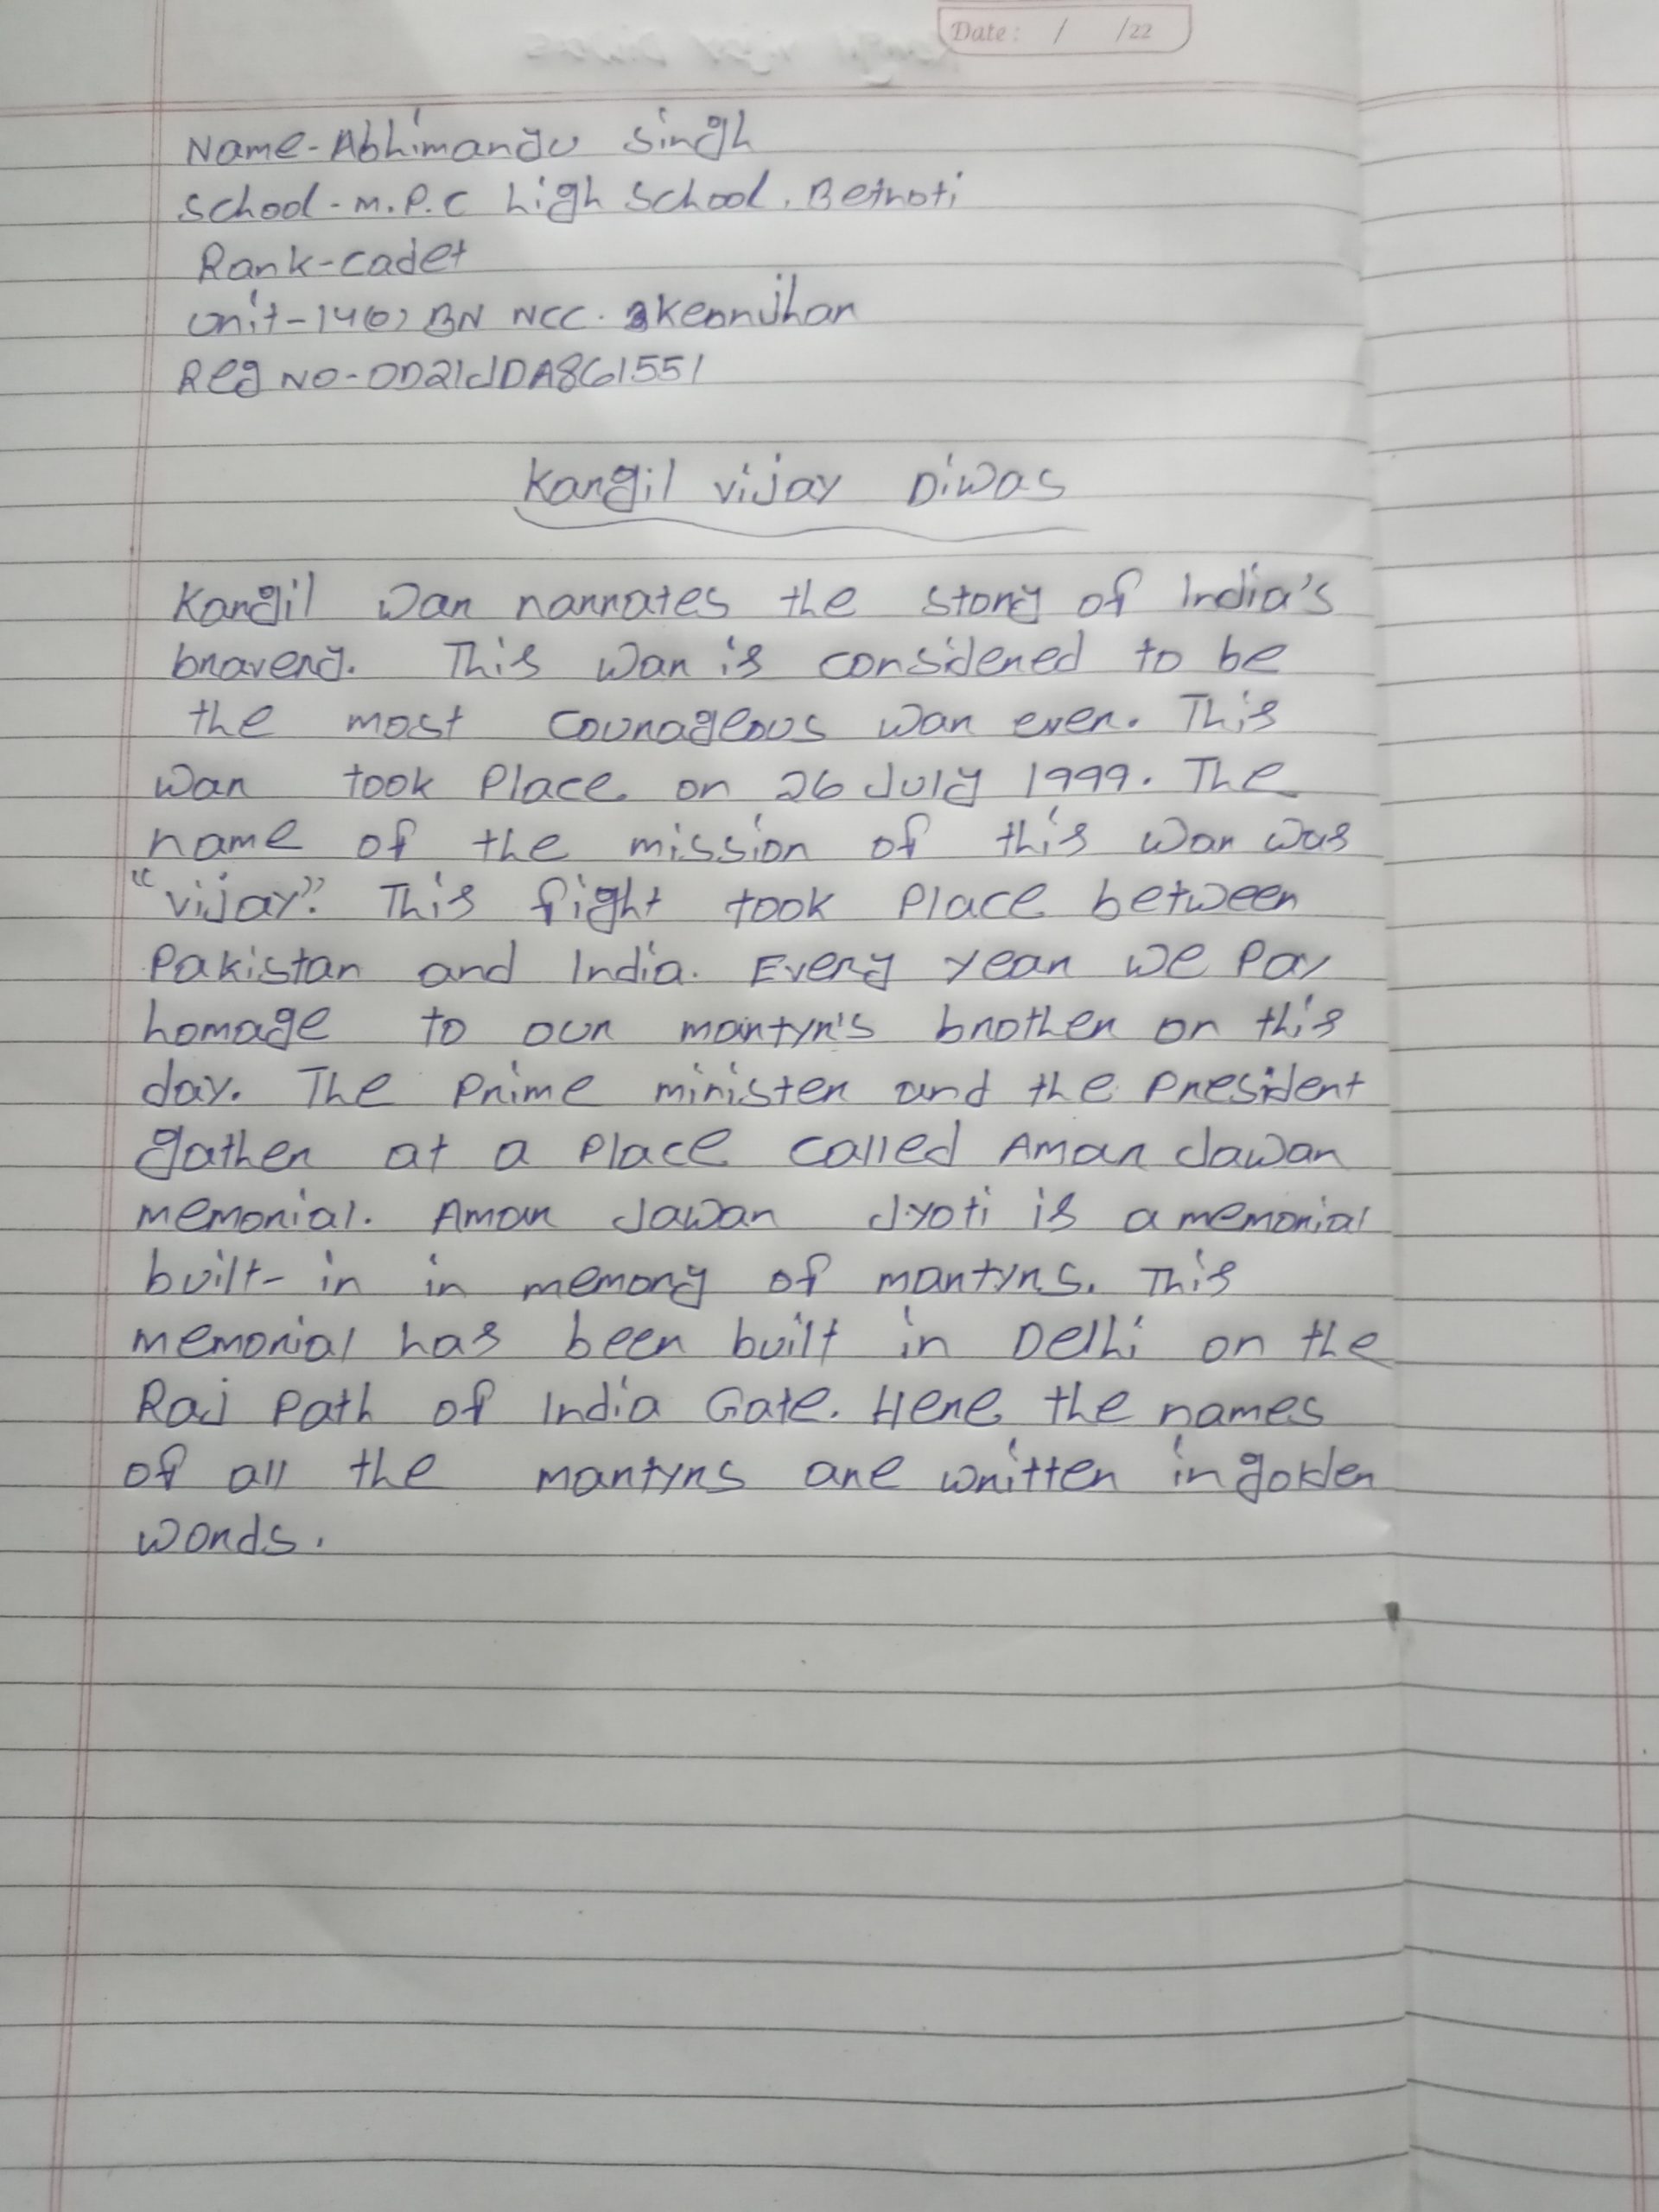 Date: / /22
Name-Abhimanyu Singh
School-M.P.C high School, Betnoti
Rank-cadet
Unit-14(O) BN NCC. Keonnjhar
Reg NO-OD21JDA861551
Kargil vijay Diwas
Kargil War narrates the story of India's
bravery. This War is considered to be
the most Courageous War ever. This
War took Place on 26 July 1999. The
name of the mission of this War was
"vijay". This fight took Place between
Pakistan and India. Every year we Pay
homage to our martyr's brother on this
day. The Prime minister and the President
gather at a Place called Amar Jawan
memorial. Amar Jawan Jyoti is a memorial
built-in in memory of martyrs. This
memorial has been built in Delhi on the
Raj Path of India Gate. Here the names
of all the martyrs are written in golden
words.